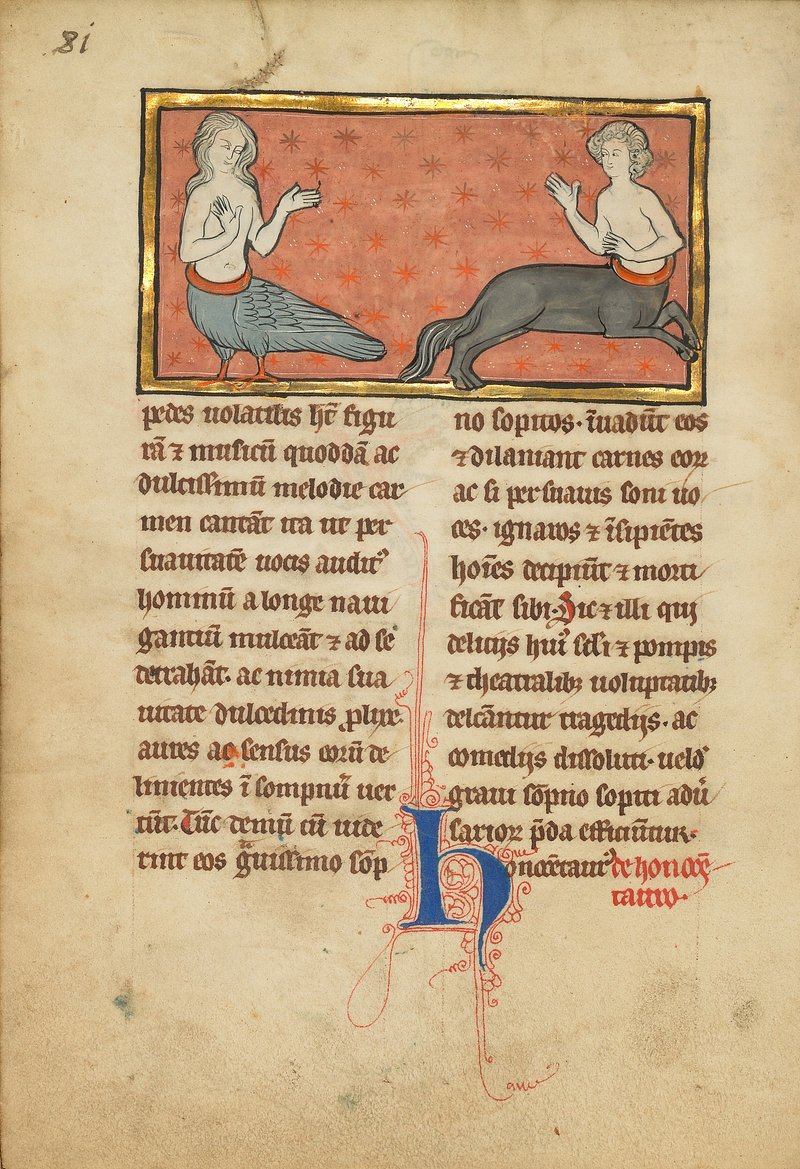 8i
pedes uolatilis hēt figu
rā ⁊ musicū quoddā ac
dulcissimū melodie car
men cantāt ita ut per
suauitatē uocis audit᾽
hominū a longe naui
gantiū mulceāt ⁊ ad se
detrahāt. ac nimia sua
uitate dulcedinis ꝓlixe
aures ac sensus eorū de
linientes ī sompnū uer
tūt. Tūc demū cū uide
rint eos g̃uissimo sōp
no sopitos. īuadūt eos
⁊ dilaniant carnes eoꝝ
ac si persuauis soni uo
ces. ignaros ⁊ īsipiētes
hoīes decipiūt ⁊ morti
ficāt sibi. Sic ⁊ illi qui
delicijs hui᾽ scl̄i ⁊ pompis
⁊ theatralibꝫ uoluptatibꝫ
delcāntur tragedijs. ac
comedijs dissoluti. uelđ
graui sōpno sopiti adū
sarioꝝ p̄da efficiūntur.
honocētaur᾽ de honocē
tauro.